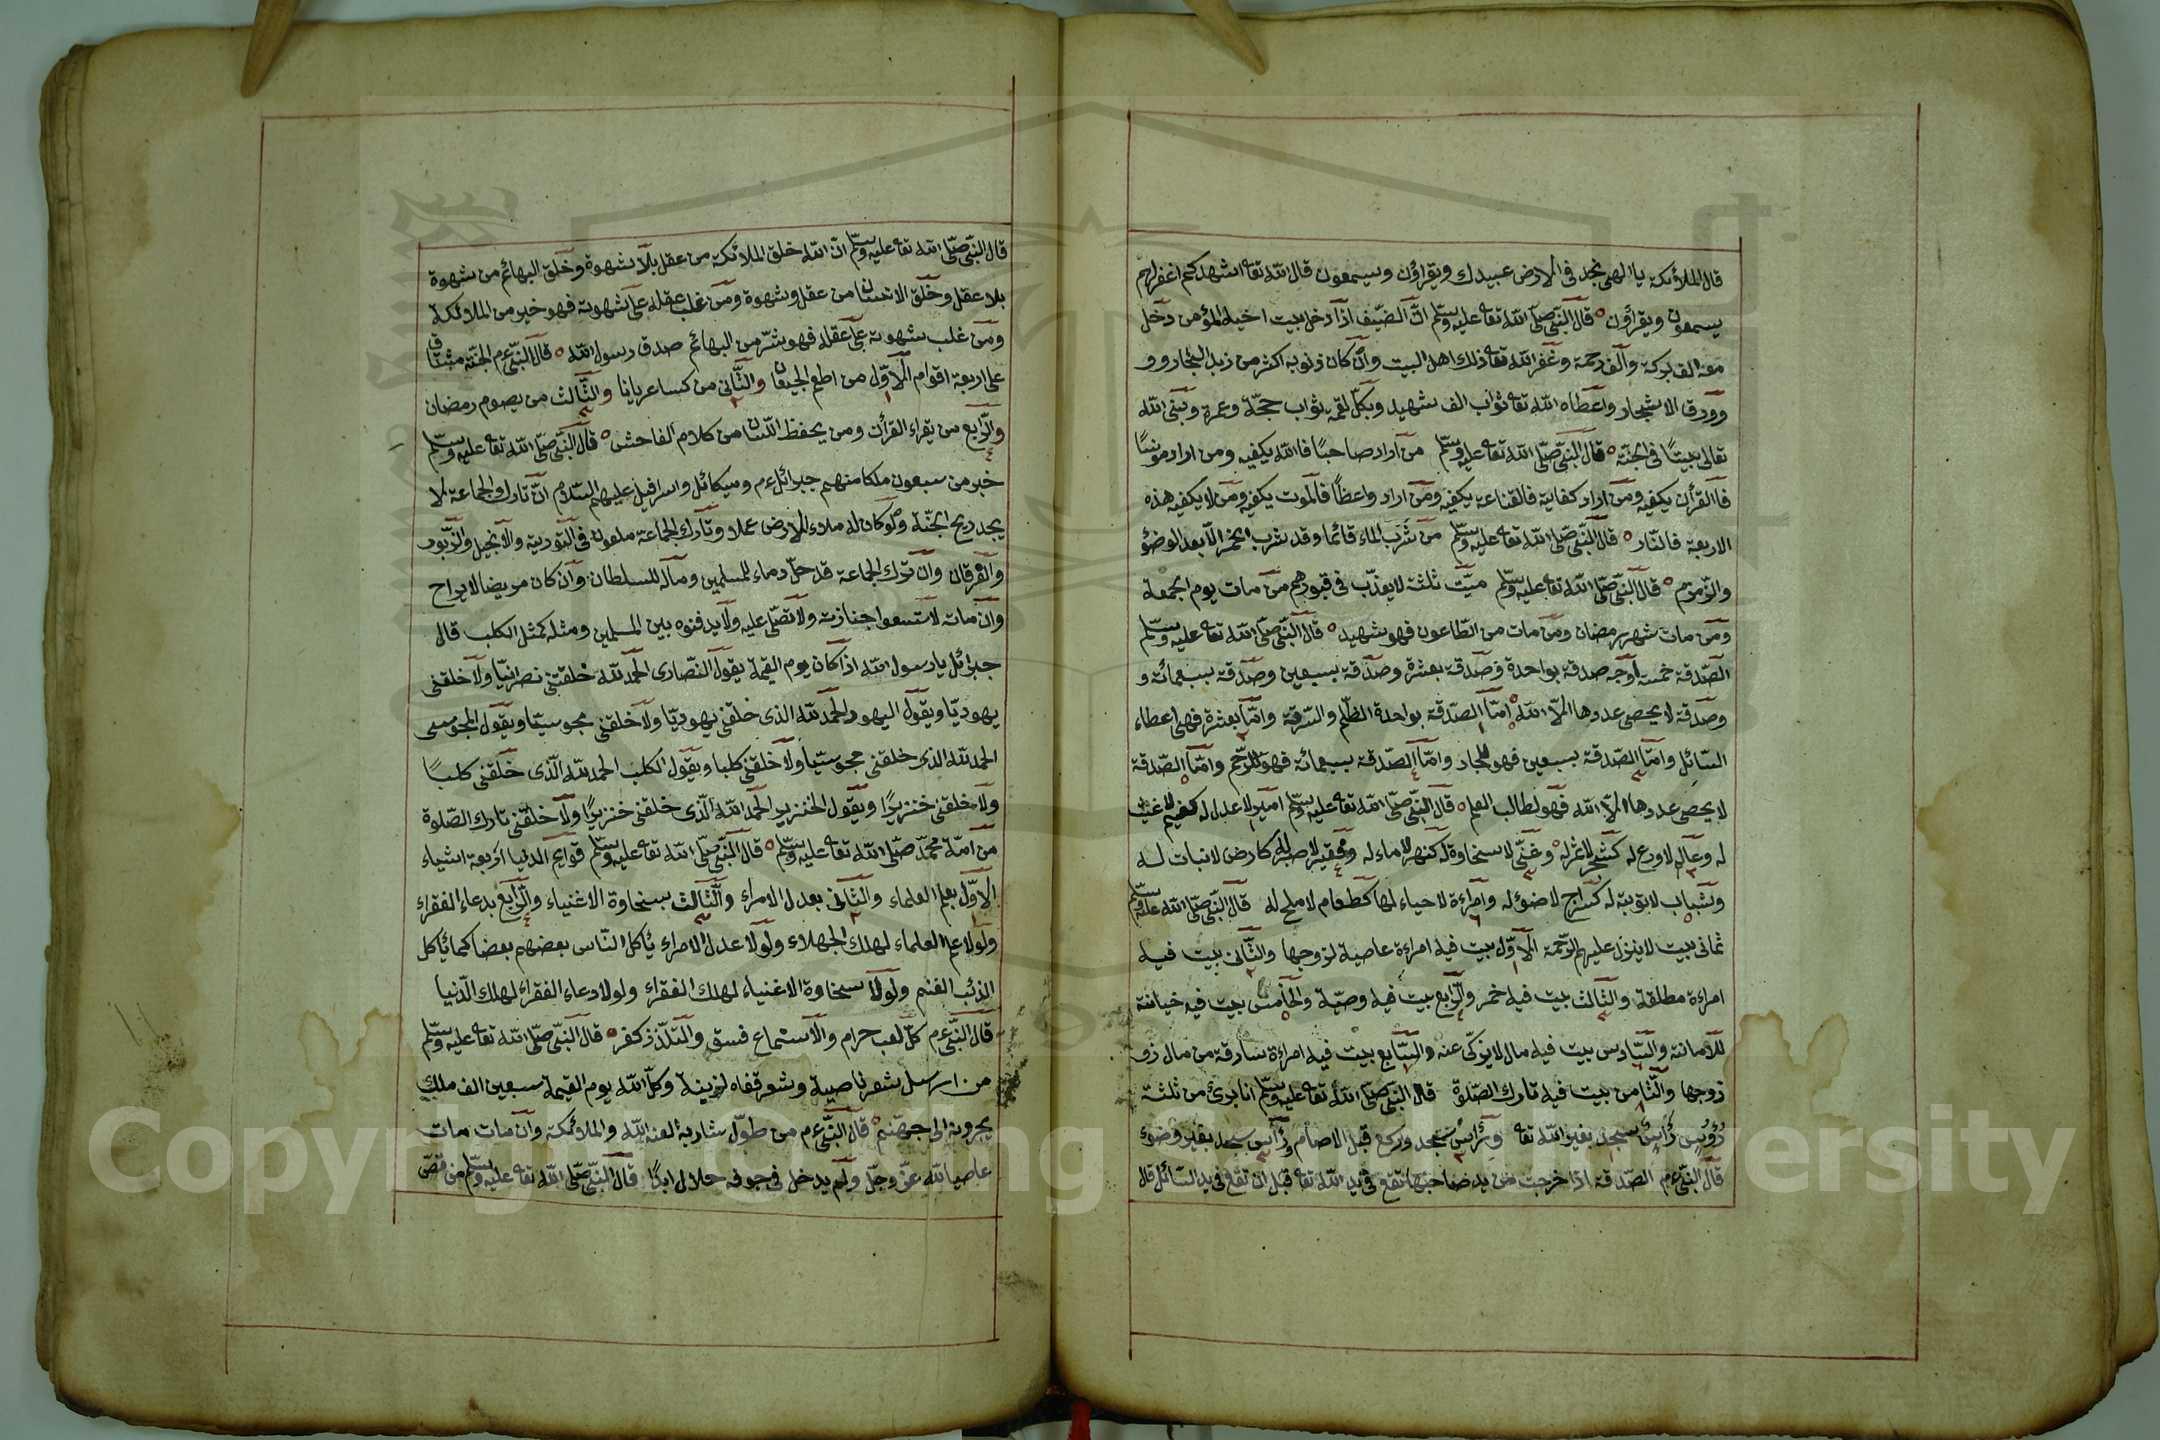 قال الملائكة يا الهى نجد فى الارض عبيدك ويقراؤن ويسمعون قال الله تعا اشهدكم اغفر لهم
يسمعون ويقرأون قال النبى صلى الله تعا عليه وسلم ان الضيف اذا دخل بيت اخيه المؤمن دخل
معه الف بركة والف رحمة وغفر الله تعا ذلك اهل البيت وان كان ذنوبه اكثر من زبد البحار و و
وورق الاشجار واعطاه الله تعا ثواب الف شهيد وبكل لقمة ثواب حجة وعمرة وبنى الله
تعالى بيتا فى الجنة قال النبى صلى الله تعا عليه وسلم من اراد صاحبا فا الله يكفيه ومن اراد مونسا
فا القرأن يكفيه ومن اراد كفاية فالقناعة يكفيه ومن اراد واعظا فالموت يكفيه ومن لا يكفيه هذه
الاربعة فالنار قال النبى صلى الله تعا عليه وسلم من شرب الماء قائما وقد شرب الخمر الا بعد الوضؤ
والزمزم قال النبى صلى الله تعا عليه وسلم ميت ثلثة لا يعذب فى قبورهم من مات يوم الجمعة
ومن مات شهر رمضان ومن مات من الطاعون فهو شهيد قال النبى صلى الله تعا عليه وسلم
الصدقة خمسة اوجه صدقة بواحدة وصدقة بعشرة وصدقة بسبعين وصدقة بسبعمائة و
وصدقة لا يحصى عددها الا الله اما الصدقة بواحدة الظلم والسرقة واما بعشرة فهى اعطاء
السائل واما الصدقة بسبعين فهو للجار واما الصدقة بسبعمائة فهو للرحم واما الصدقة
لا يحصى عددها الا الله فهو لطالب العلم قال النبى صلى الله تعا عليه وسلم امير لا عدل له كغيم لا غيث
له وعالم لا ورع له كشجر لا ثمر له وغنى لا سخاوة له كنهر لا ماء له وفقير لا صبر له كارض لا نبات له
وشباب لا توبة له كسراج لا ضؤ له وامراءة لا حياء لها كطعام لا ملح له قال النبى صلى الله عليه وسلم
ثمانى بيت لا ينزل عليهم الرحمة الاول بيت فيه امراءة عاصية لزوجها والثانى بيت فيه
امراءة مطلقة والثالث بيت فيه خمر والرابع بيت فيه وصية والخامس بيت فيه خيانة
للامانة والسادس بيت فيه مال لا يزكى عنه والسابع بيت فيه امراءة سارقة من مال زو
زوجها والثامن بيت فيه تارك الصلوة قال النبى صلى الله تعا عليه وسلم انا برئ من ثلثة
رؤوس رأس سجد بغير الله تعا ورأس سجد وركع قبل الامام ورأس سجد بغير وضوء
قال النبى ءم الصدقة اذا خرجت من يد صاحبها تقع فى يد الله تعا قبل ان تقع فى يد السائل قال
قال النبى صلى الله تعا عليه وسلم ان الله خلق الملائكة من عقل بلا شهوة وخلق البهائم من شهوة
بلا عقل وخلق الانسان من عقل وشهوة ومن غلب عقله على شهوته فهو خير من الملائكة
ومن غلب شهوته على عقله فهو شر من البهائم صدق رسول الله قال النبى ءم الجنة مشتاق
على اربعة اقوام الاول من اطعم الجيعان والثانى من كسا عريانا والثالث من يصوم رمضان
والرابع من يقراء القرأن ومن يحفظ اللسان من كلام الفاحش قال النبى صلى الله تعا عليه وسلم
خبر من سبعون ملكا منهم جبرائل ءم وميكائل واسرافيل عليهم السلام ان تارك الجماعة لا
يجد ريح الجنة ولو كان له ملاء الارض عملا وتارك الجماعة ملعون فى التورية والانجيل والزبور
والفرقان وان ترك الجماعة قد حل دماء للمسلمين وماله للسلطان وان كان مريضا لا يراح
وان مات لا تسعوا جنازته ولا تصلى عليه ولا يدفنوه بين المسلمين ومثله كمثل الكلب قال
جبرائل يا رسول الله اذا كان يوم القيمة يقول النصارى الحمد لله خلقتنى نصرانيا ولا خلقنى
يهوديا ويقول اليهود الحمد لله الذى خلقنى يهوديا ولا خلقنى مجوسيا ويقول المجوسى
الحمد لله الذى خلقنى مجوسيا ولا خلقنى كلبا ويقول الكلب الحمد لله الذى خلقنى كلبا
ولا خلقنى خنزيرا ويقول الخنزير الحمد الله الذى خلقنى خنزيرا ولا خلقنى تارك الصلوة
من امة محمد صلى الله تعا عليه وسلم قال النبى صلى الله تعا عليه وسلم قوايم الدنيا اربعة اشياء
الاول بعلم العلماء والثانى بعدل الامراء والثالث بسخاوة الاغنياء والرابع بدعاء الفقراء
ولولا علم العلماء لهلك الجهلاء ولولا عدل الامراء يأكل الناس بعضهم بعضا كما يأكل
الذئب الغنم ولولا سخاوة الاغنياء لهلك الفقراء ولولا دعاء الفقراء لهلك الدنيا
قال النبى ءم كل لعب حرام والاستماع فسق والتلذذ كفر قال النبى صلى الله تعا عليه وسلم
من ارسل شعر ناصية وشعر قفاه لزينة وكل الله يوم القيمة سبعين الف ملك
يجرونه الى جهنم قال النبى ءم من طول شاربه لعنه الله والملائكة وان مات مات
عاصيا لله عز وجل ولم يدخل فى جوفه حلال ابدا قال النبى صلى الله تعا عليه وسلم من قص
Copyright © King Saud University